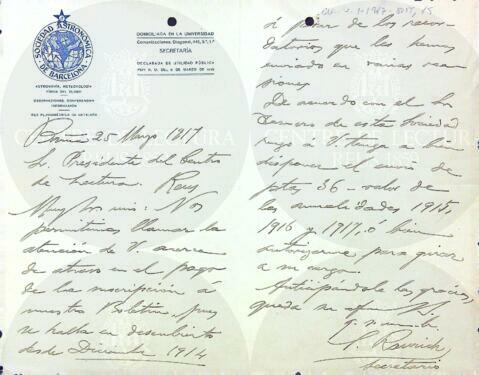 SOCIEDAD ASTRONÓMICA
DE BARCELONA
ASTRONOMÍA, METEOROLOGÍA
FÍSICA DEL GLOBO
OBSERVACIONES, CONFERENCIAS
INFORMACIÓN
DOMICILIADA EN LA UNIVERSIDAD
SECRETARÍA
DECLARADA DE UTILIDAD PÚBLICA
25 Mayo 1917
Sr. Presidente del Centro
de Lectura. Reus
Muy Sr. mio: Nos
permitimos llamar la
atención de V. acerca
de atraso en el pago
de la inscripción á
nuestro Boletín, pues
se halla en descubierto
desde Diciembre 1914
á pesar de los recor-
datorios, que les hemos
enviado en varias oca-
siones
De acuerdo con el Sr.
Tesorero de esta Sociedad
ruego á V. tenga a bien
disponer el envio de
ptas 36 - valor de
las anualidades 1915,
1916 y 1917, ó bien
autorizarme para girar
a su cargo.
Anticipándole las gracias,
queda su afmo. S.
q. s. m. b.
Secretario
CENTRE DE LECTURA
REUS